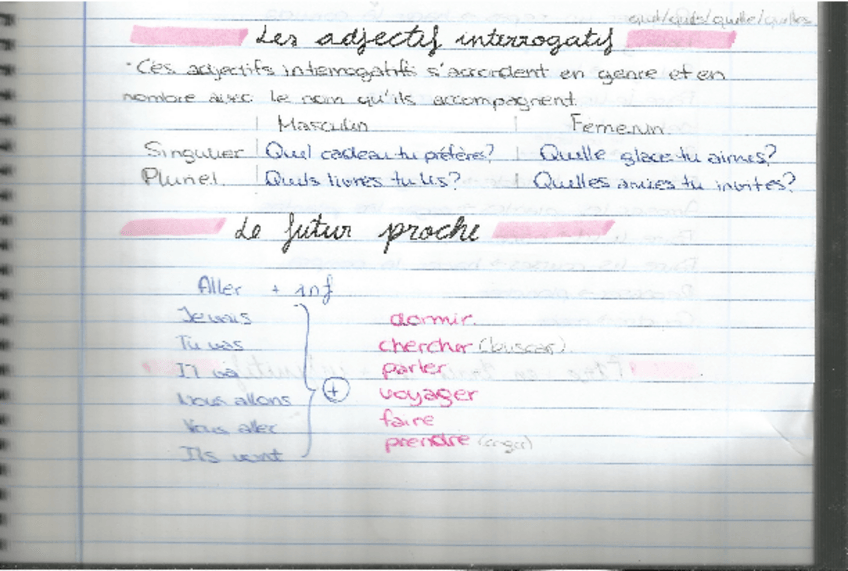 quel/quels/quelle/quelles
Les adjectif interrogatif
·Ces adjectifs interrogatifs s'accordent en genre et en
nombre avec le nom qu'ils accompagnent
Masculin Femenin
Singulier Quel cadeau tu préfères? Quelle glace tu aimes?
Pluriel Quels livres tu lis? Quelles amies tu invites?
Le futur proche
Aller + inf
Je vais dormir.
Tu vas chercher (buscar)
Il va parler
Nous allons + voyager
Vous aller faire
Ils vont prendre